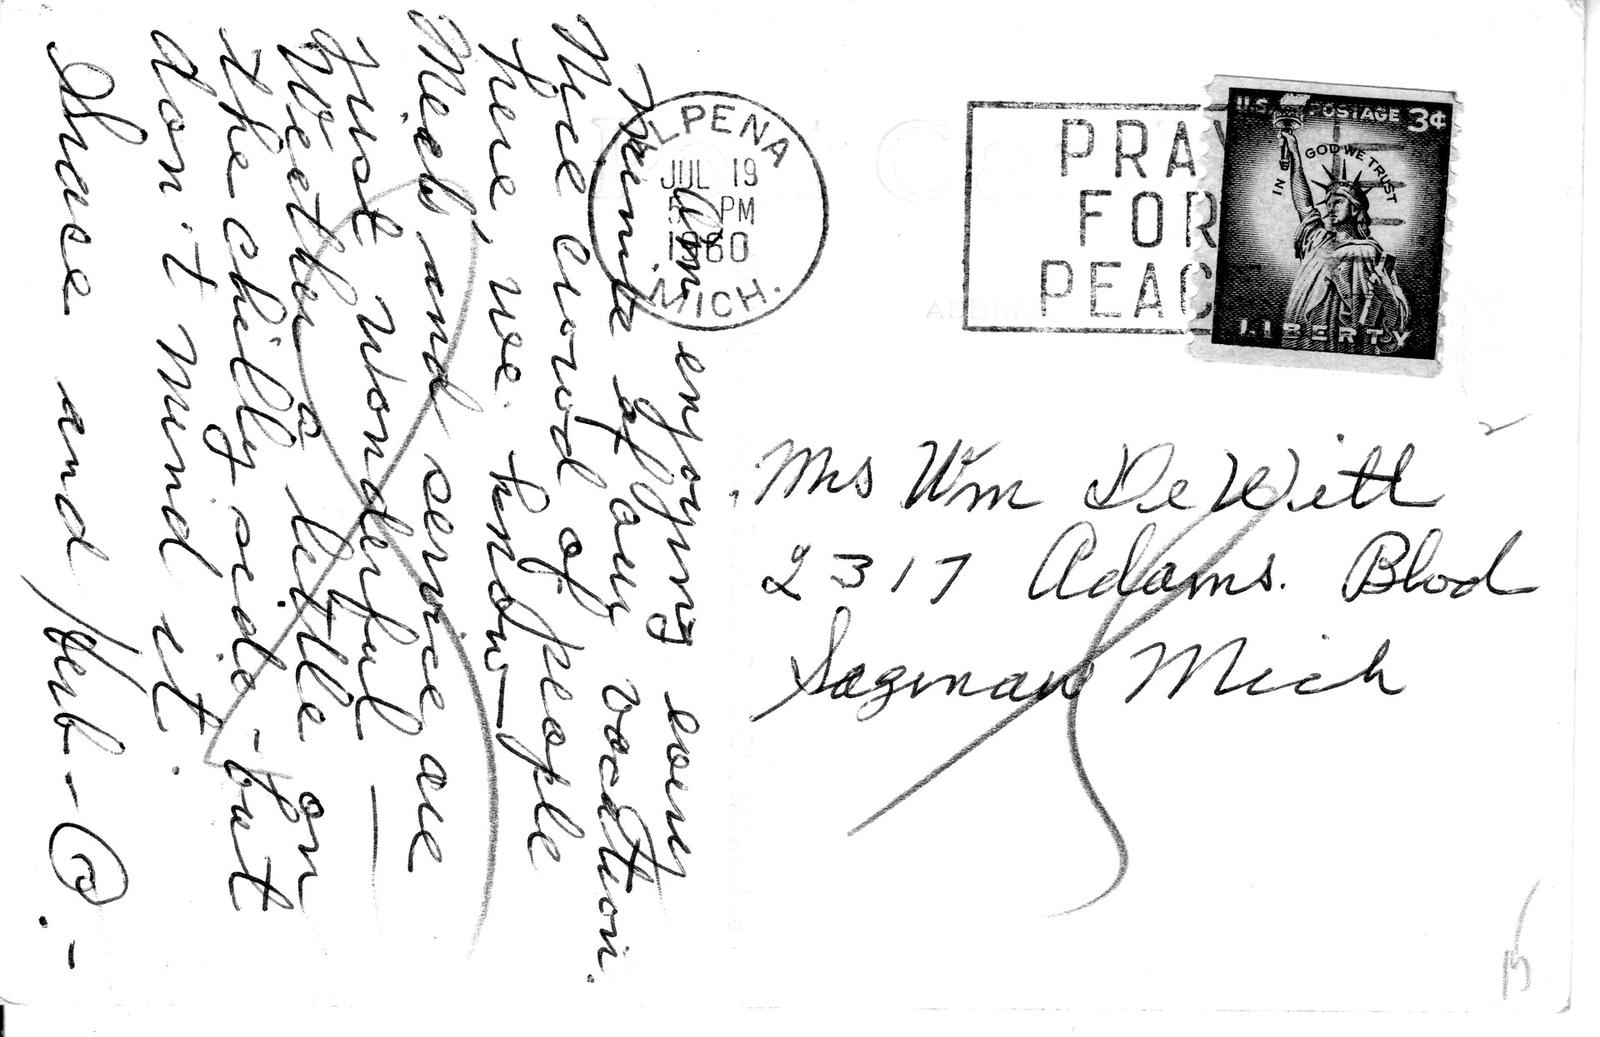 ALPENA
JUL 19
5 PM
1960
MICH.
PRAY
FOR
PEAC
U.S. POSTAGE 3¢
IN GOD WE TRUST
LIBERTY
Am enjoying every
minute of our vacation.
Nice crowd of people
here, we know—
Meals and service are
just wonderful—
Weather a little on
the chilly side - but
don't mind it.
and Herb -
Mrs Wm DeWitt
2317 Adams. Blvd
Saginaw Mich
15